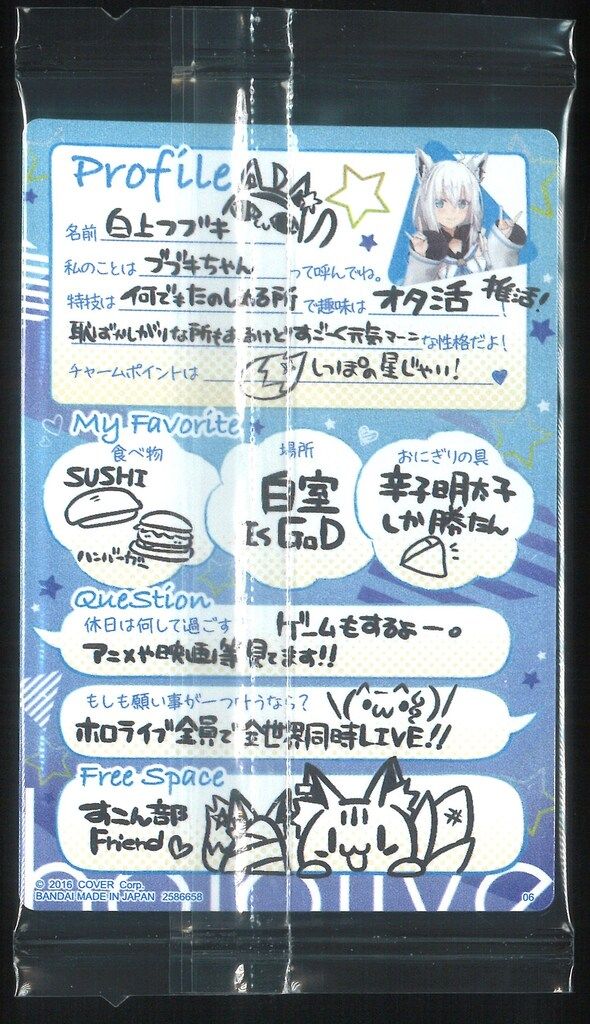 Profile
名前 白上フブキ
私のことは フブキちゃん って呼んでね。
特技は 何でもたのしめる所 で趣味は オタ活 推活!
恥ずかしがりな所もあるけどすごーく元気マーン な性格だよ!
チャームポイントは しっぽの星じゃい!
My Favorite
食べ物
SUSHI
ハンバーガー
場所
自室
Is GoD
おにぎりの具
辛子明太子
しか勝たん
QueStion
休日は何して過ごす
ゲームもするよー。
アニメや映画等見てます!!
もしも願い事が一つ叶うなら?
\(^ω^§)/
ホロライブ全員で全世界同時LIVE!!
Free Space
すこん部
Friend♡
hololive
© 2016 COVER Corp.
BANDAI MADE IN JAPAN 2586658
06